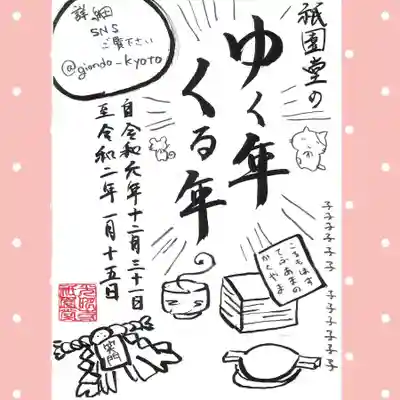 祇園堂の
ゆく年
くる年
詳細
SNS
ご覧下さい
@giondo_kyoto
自令和元年十二月三十一日
至令和二年一月十五日
子子子子子子
子子子子子子
ころもほす
てふあまの
かくやま
笑門